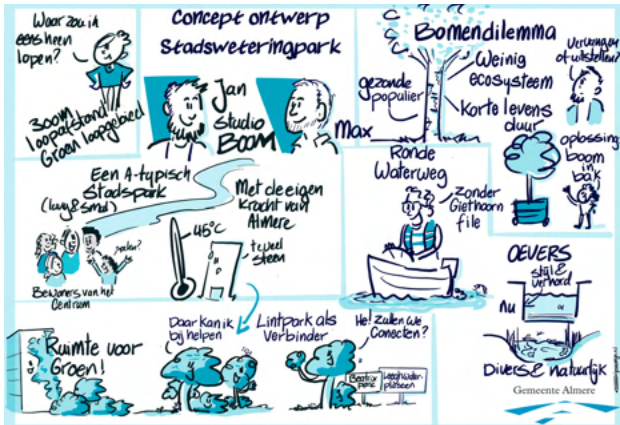 Waar zou ik
eens heen
lopen?
300m
loopafstand
Groen loopgebied
Concept ontwerp
Stadsweteringpark
Jan
Studio
BOOM
Max
Bomendilemma
gezonde
populier
Weinig
ecosysteem
Korte levens
duur
Vervangen
of uitstellen?
oplossing:
boom
in
bak
Een A-typisch
Stadspark
(lang & smal)
Bewoners van het
Centrum
Met de eigen
kracht van
Almere
45°C
te veel
steen
Ronde
Waterweg
zonder
Giethoorn
file
OEVERS
stijl &
verhard
nu
Divers & natuurlijk
Ruimte voor
Groen!
Daar kan ik
bij helpen
Lintpark als
Verbinder
He! Zullen we
Conecten?
Beatrix
park
Leeghwater
plantsoen
Gemeente Almere